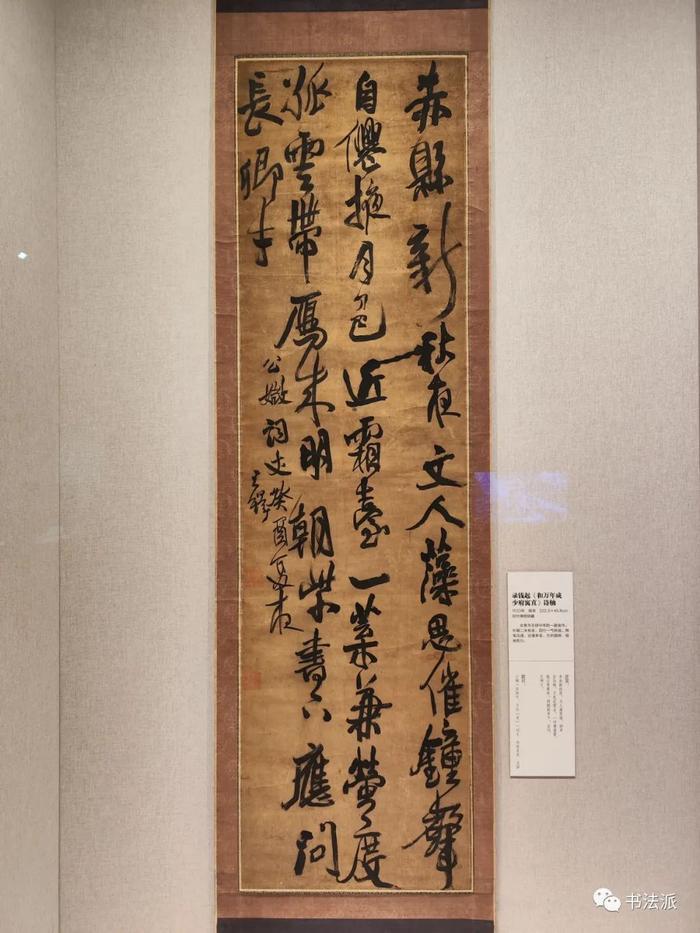 赤縣新秋夜文人藻思催鐘聲
自僊掖月色近霜臺一葉兼螢度
孤雲帶鴈來明朝紫書下應問
長卿才
公嫩詞丈癸酉夏
王鐸
录钱起《和万年成
少府寓直》诗轴
书法派